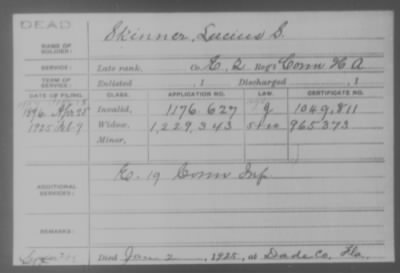 DEAD
Skinner, Lucius S.
NAME OF SOLDIER:
SERVICE: Late rank, Co. E, 2, Reg't Conn H A
TERM OF SERVICE: Enlisted , 1 Discharged , 1
DATE OF FILING. CLASS. APPLICATION NO. LAW. CERTIFICATE NO.
1896 Apr 25 Invalid, 1176.627 g 1049.811
1925 Feb 9 Widow, 1,229,343 965373
Minor,
ADDITIONAL SERVICES: K. 19 Conn Inf
REMARKS:
Died Jan 2, 1925, at Dade Co, Fla.